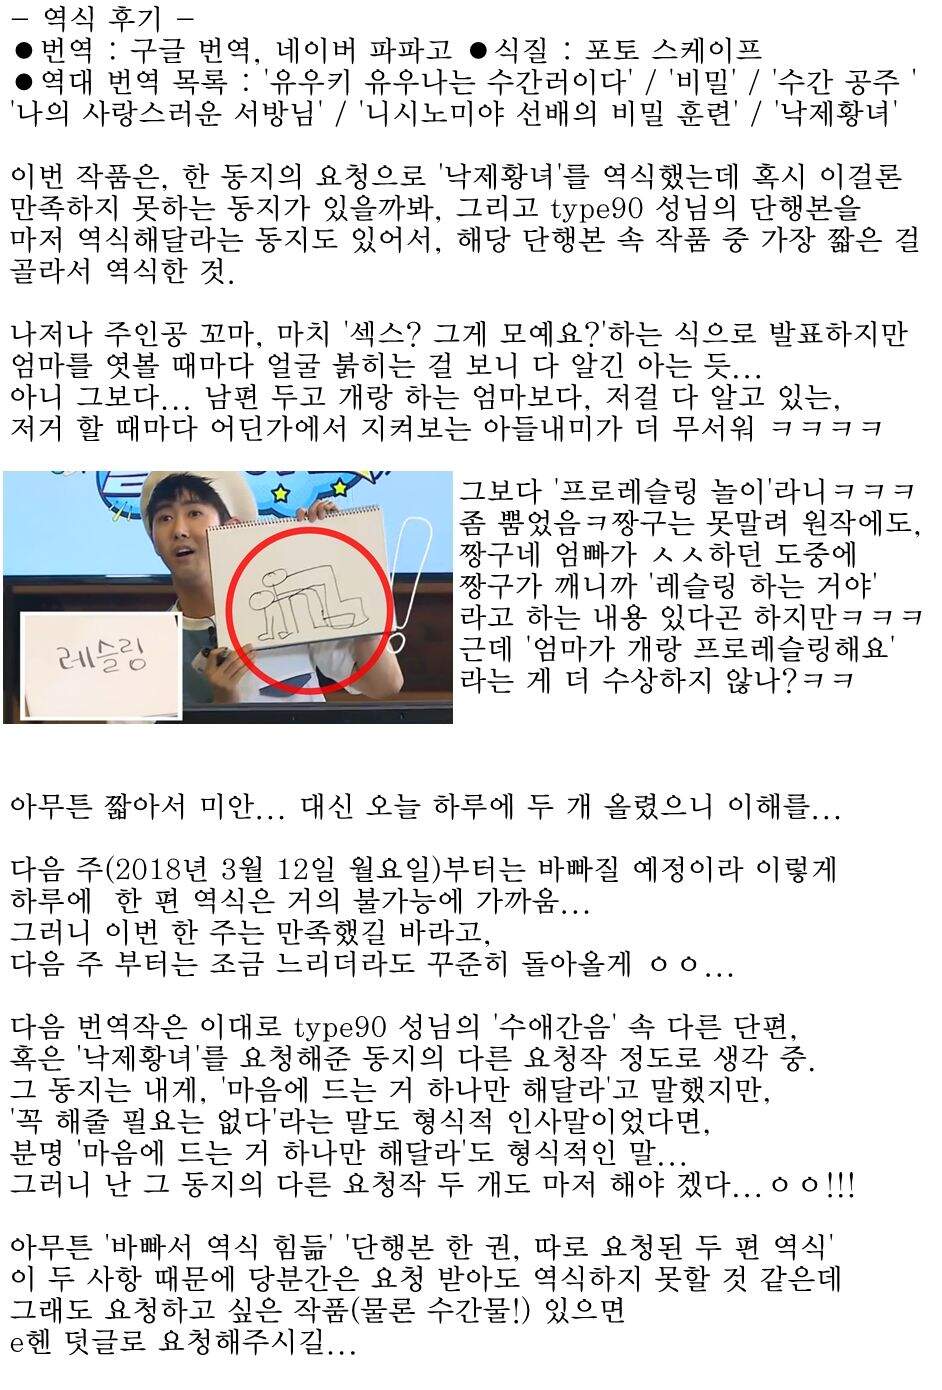 - 역식 후기 -
●번역 : 구글 번역, 네이버 파파고 ●식질 : 포토 스케이프
●역대 번역 목록 : '유우키 유우나는 수간러이다' / '비밀' / '수간 공주 '
'나의 사랑스러운 서방님' / '니시노미야 선배의 비밀 훈련' / '낙제황녀'
이번 작품은, 한 동지의 요청으로 '낙제황녀'를 역식했는데 혹시 이걸론
만족하지 못하는 동지가 있을까봐, 그리고 type90 성님의 단행본을
마저 역식해달라는 동지도 있어서, 해당 단행본 속 작품 중 가장 짧은 걸
골라서 역식한 것.
나저나 주인공 꼬마, 마치 '섹스? 그게 모예요?'하는 식으로 발표하지만
엄마를 엿볼 때마다 얼굴 붉히는 걸 보니 다 알긴 아는 듯...
아니 그보다... 남편 두고 개랑 하는 엄마보다, 저걸 다 알고 있는,
저거 할 때마다 어딘가에서 지켜보는 아들내미가 더 무서워 ㅋㅋㅋㅋ
그보다 '프로레슬링 놀이'라니ㅋㅋㅋ
좀 뿜었음ㅋ짱구는 못말려 원작에도,
짱구네 엄빠가 ㅅㅅ하던 도중에
짱구가 깨니까 '레슬링 하는 거야'
라고 하는 내용 있다곤 하지만ㅋㅋㅋ
근데 '엄마가 개랑 프로레슬링해요'
라는 게 더 수상하지 않나?ㅋㅋ
레슬링
아무튼 짧아서 미안... 대신 오늘 하루에 두 개 올렸으니 이해를...
다음 주(2018년 3월 12일 월요일)부터는 바빠질 예정이라 이렇게
하루에  한 편 역식은 거의 불가능에 가까움...
그러니 이번 한 주는 만족했길 바라고,
다음 주 부터는 조금 느리더라도 꾸준히 돌아올게 ㅇㅇ...
다음 번역작은 이대로 type90 성님의 '수애간음' 속 다른 단편,
혹은 '낙제황녀'를 요청해준 동지의 다른 요청작 정도로 생각 중.
그 동지는 내게, '마음에 드는 거 하나만 해달라'고 말했지만,
'꼭 해줄 필요는 없다'라는 말도 형식적 인사말이었다면,
분명 '마음에 드는 거 하나만 해달라'도 형식적인 말...
그러니 난 그 동지의 다른 요청작 두 개도 마저 해야 겠다...ㅇㅇ!!!
아무튼 '바빠서 역식 힘듦' '단행본 한 권, 따로 요청된 두 편 역식'
이 두 사항 때문에 당분간은 요청 받아도 역식하지 못할 것 같은데
그래도 요청하고 싶은 작품(물론 수간물!) 있으면
e헨 덧글로 요청해주시길...